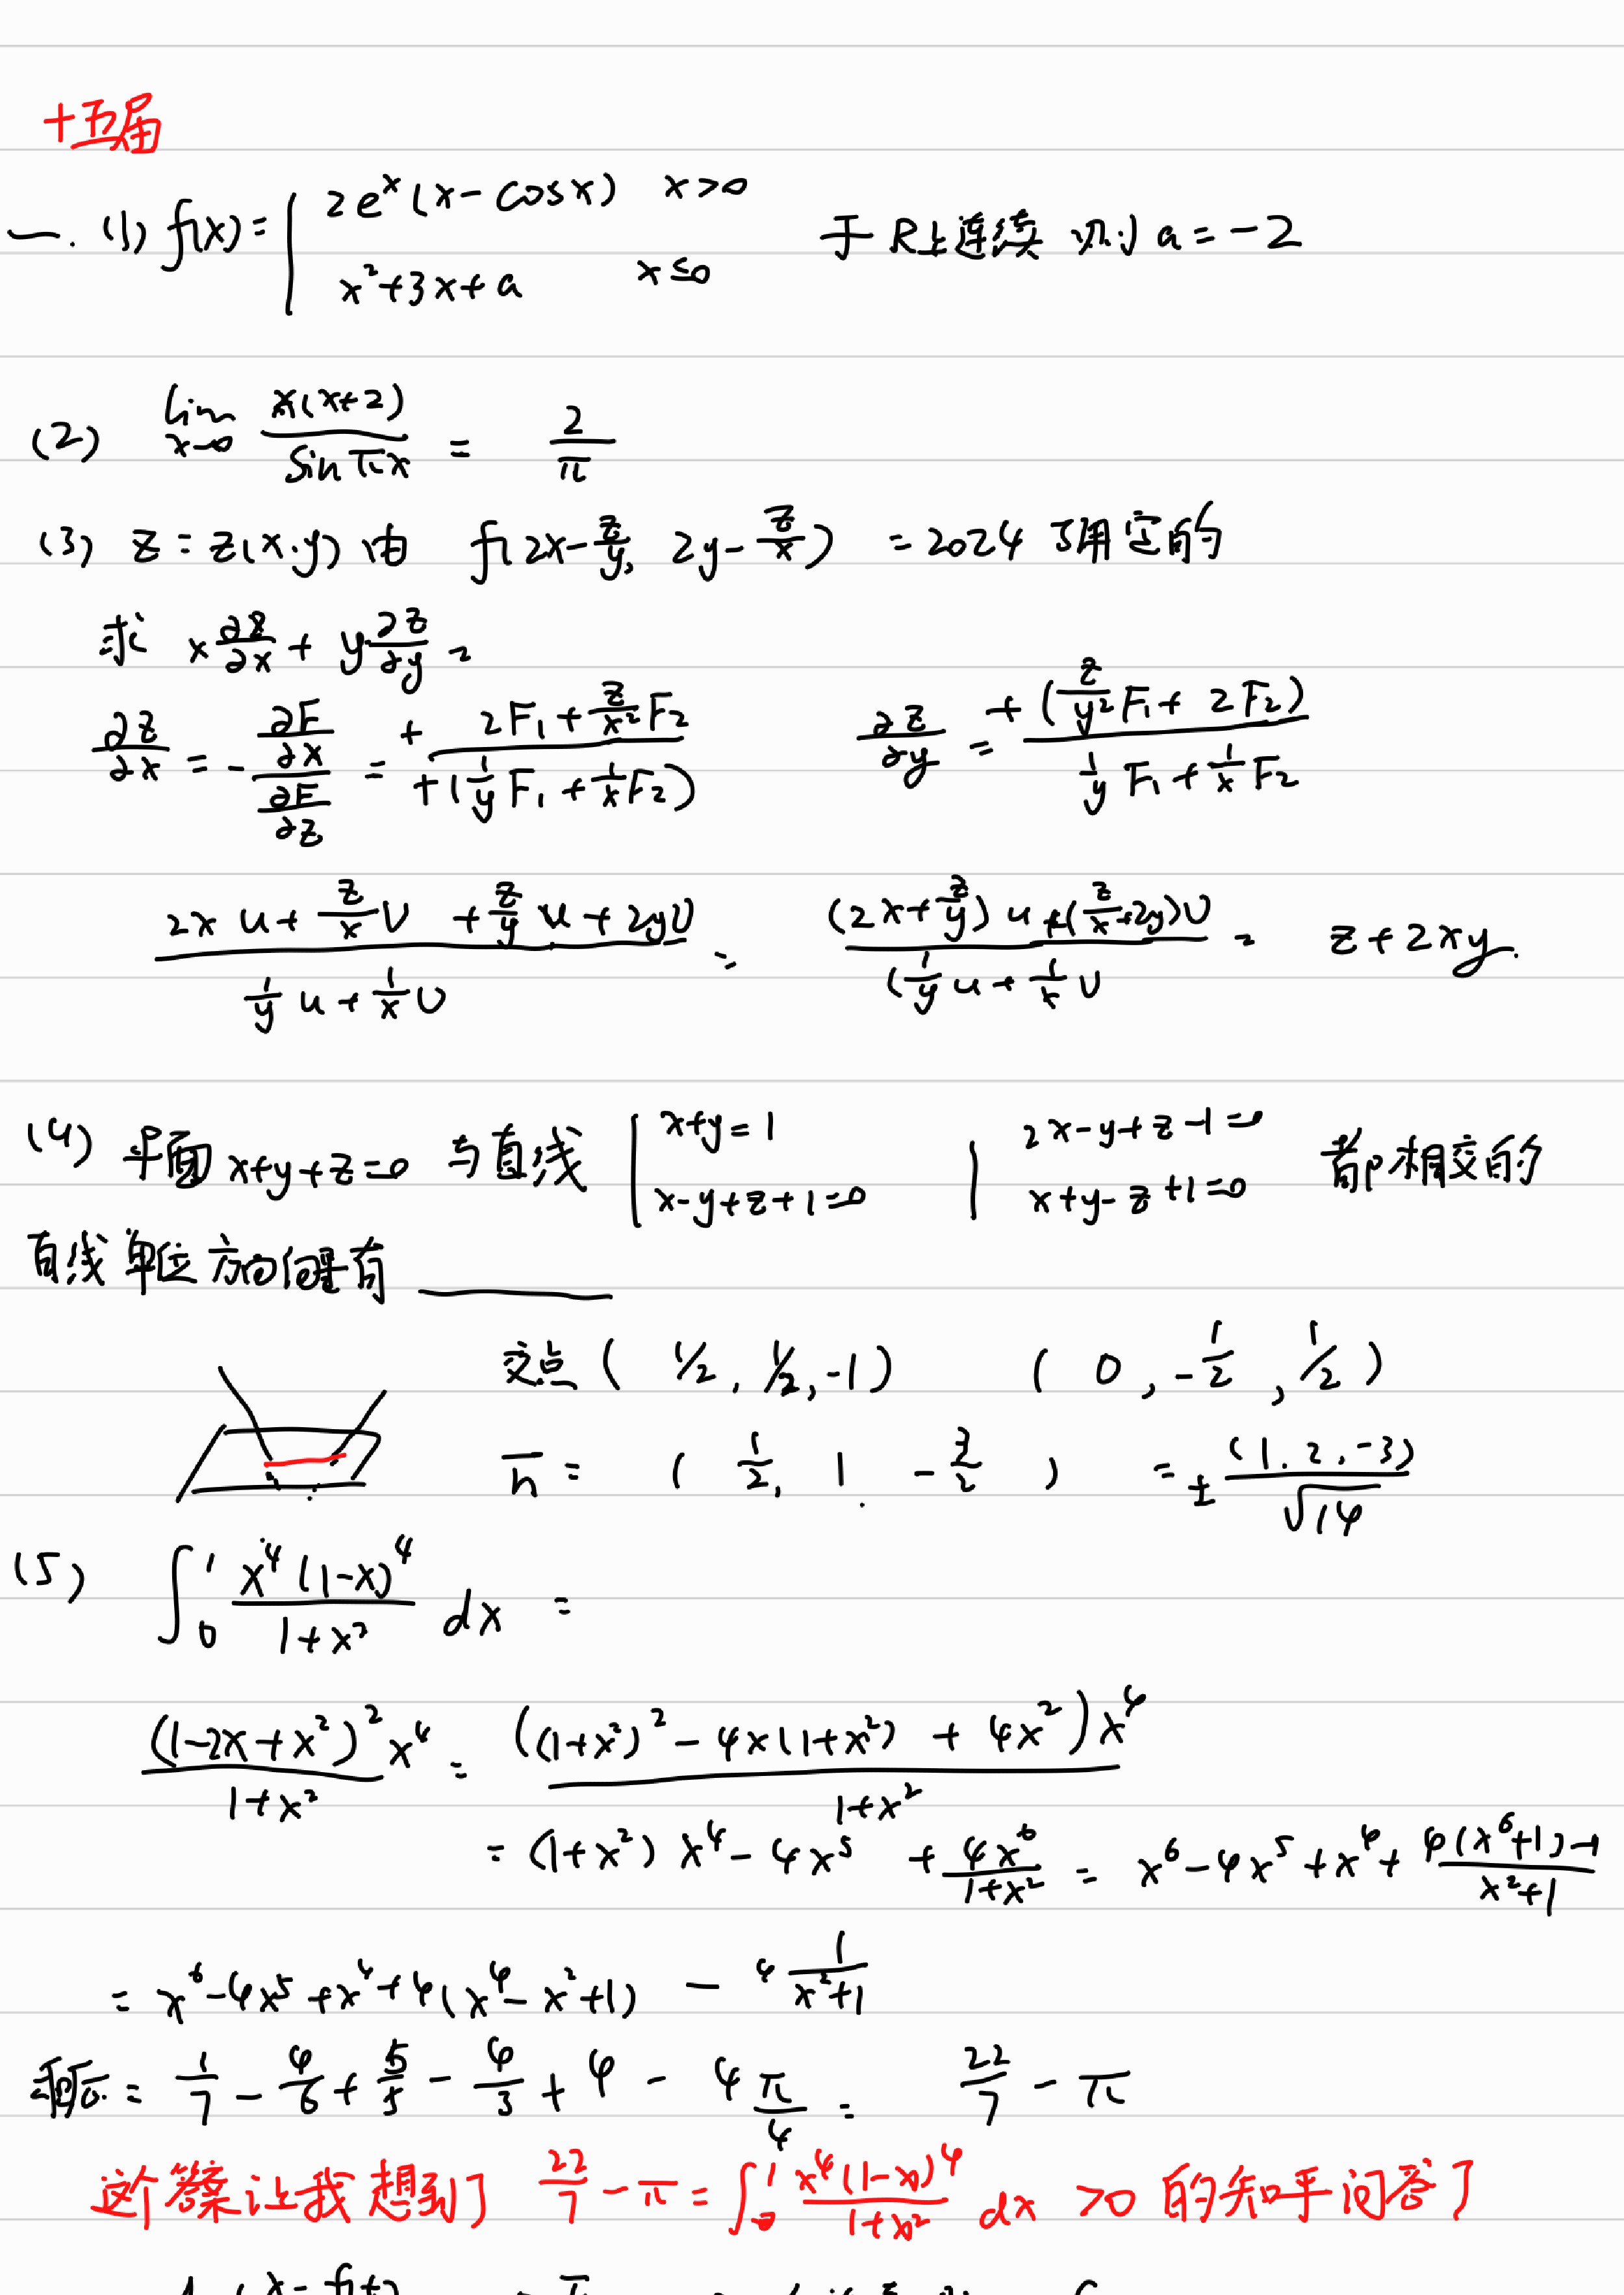 十五届
一. (1) f(x) = { 2e^x (x - cosx)  x>0
x²+3x+a  x≤0  于 R上连续 则 a = -2
(2) lim x→0 x(x+2) / sin πx = 2/π
(3) z = z(x.y) 由 f(2x - z/y, 2y - z/x) = 2024 确定的
求 x ∂z/∂x + y ∂z/∂y =
∂z/∂x = - (∂F/∂x)/(∂F/∂z) = + (2F₁ + z/x² F₂) / +(1/y F₁ + 1/x F₂)  ∂z/∂y = +(z/y² F₁ + 2F₂) / (1/y F₁ + 1/x F₂)
(2x u + z/x v + z/y u + 2y v) / (1/y u + 1/x v) = ((2x + z/y) u + (z/x + 2y) v) / (1/y u + 1/x v = z + 2xy.
(4) 平面 x+y+z=0 与直线 { x+y=1  { 2x-y+z-1=0  都相交的
x-y+z+1=0  x+y-z+1=0
直线单位方向向量有 ____
交点 ( 1/2, 1/2, -1)  ( 0, -1/2, 1/2 )
n = ( 1/2, 1. -3/2 ) = ± (1. 2, -3) / √14
(5) ∫₀¹ x⁴(1-x)⁴ / (1+x²) dx =
(1-2x+x²)² x⁴ / (1+x²) = ((1+x²)² - 4x(1+x²) + 4x²) x⁴ / (1+x²)
= (1+x²) x⁴ - 4x⁵ + 4x⁶/(1+x²) = x⁶ - 4x⁵ + x⁴ + (4(x⁶+1) - 4)/(x²+1)
= x⁶ - 4x⁵ + x⁴ + 4(x⁴ - x² + 1) - 4 1/(x²+1)
原 = 1/7 - 4/6 + 5/5 - 4/3 + 4 - 4 π/4 = 22/7 - π
这个答案让我想到了 22/7 - π = ∫₀¹ x⁴(1-x)⁴ / (1+x²) dx >0 的知乎问答了